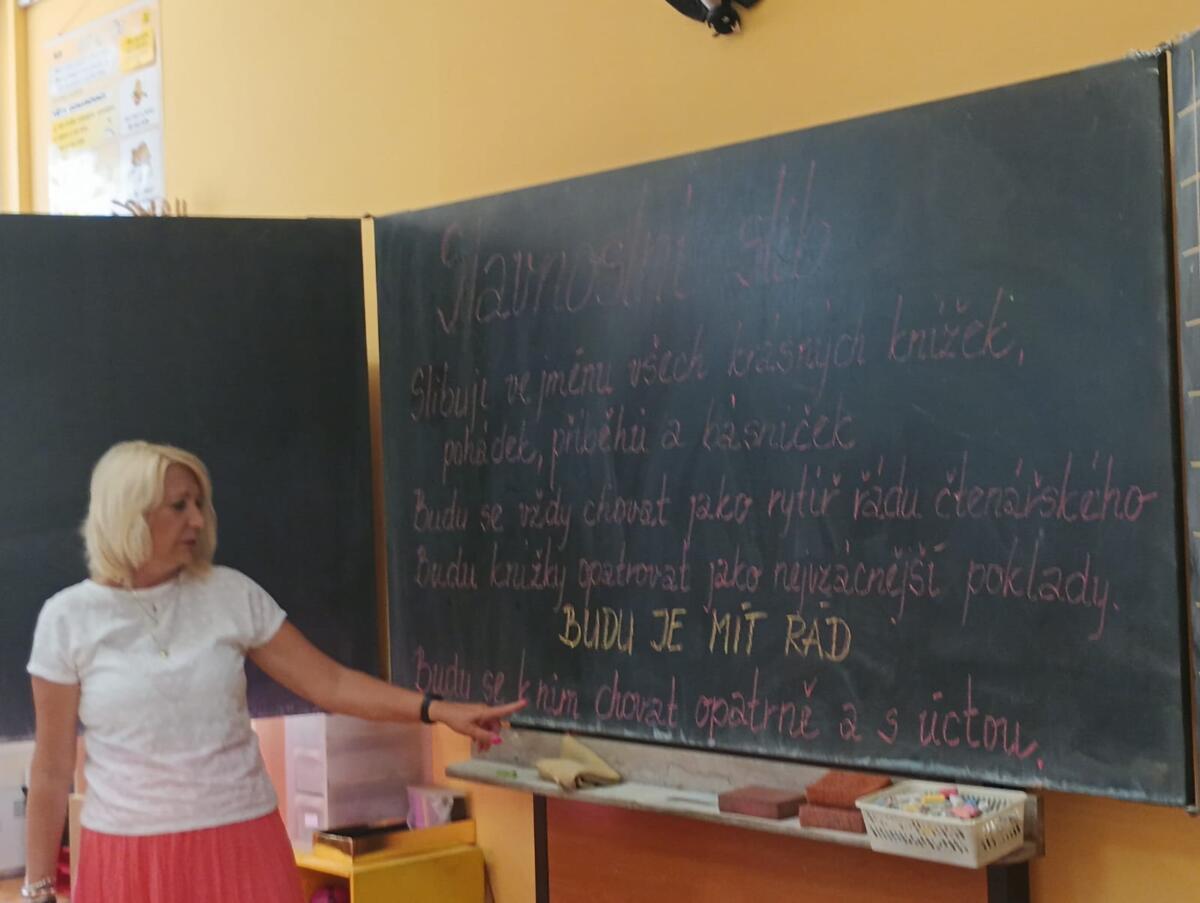 Slavnostní slib
Slibuji ve jménu všech krásných knížek,
pohádek, příběhů a básniček
Budu se vždy chovat jako rytíř řádu čtenářského
Budu knížky opatrovat jako nejvzácnější poklady.
BUDU JE MÍT RÁD
Budu se k nim chovat opatrně a s úctou.